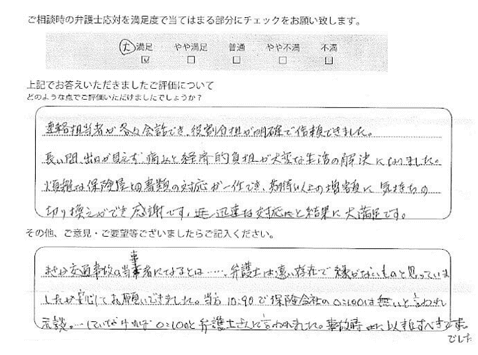 ご相談時の弁護士応対を満足度で当てはまる部分にチェックをお願い致します。
大満足 やや満足 普通 やや不満 不満
上記でお答えいただきましたご評価について
どのような点でご評価いただけましたでしょうか?
担当者が 会話でき、役割分担が明確で信頼できました。
長い間、出口が見えず痛みと経済的負担が大変な生活の解決になりました。
煩雑な保険屋と書類の対応が一任でき、期待以上の増額に気持ちの
切り換えができ感謝です。迅速な対応と結果に大満足です。
その他、ご意見・ご要望等ございましたらご記入ください。
交通事故の当事者になるとは……、弁護士は遠い存在で縁がないものと思っていま
したが安心してお願いできました。当初10:90で保険会社の0:100は無いと言われ
示談。していなければ0:100と弁護士さんに言われました。事故時 すべき
でした